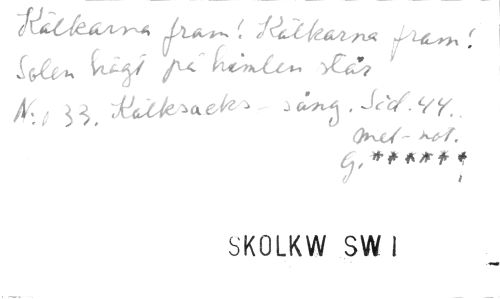 Kälkarna fram! Kälkarna fram!
Solen högt på himlen står
N:o 33. Kälkbacks-sång. Sid. 44.
met-not.
G. ******
SKOLKW SW I